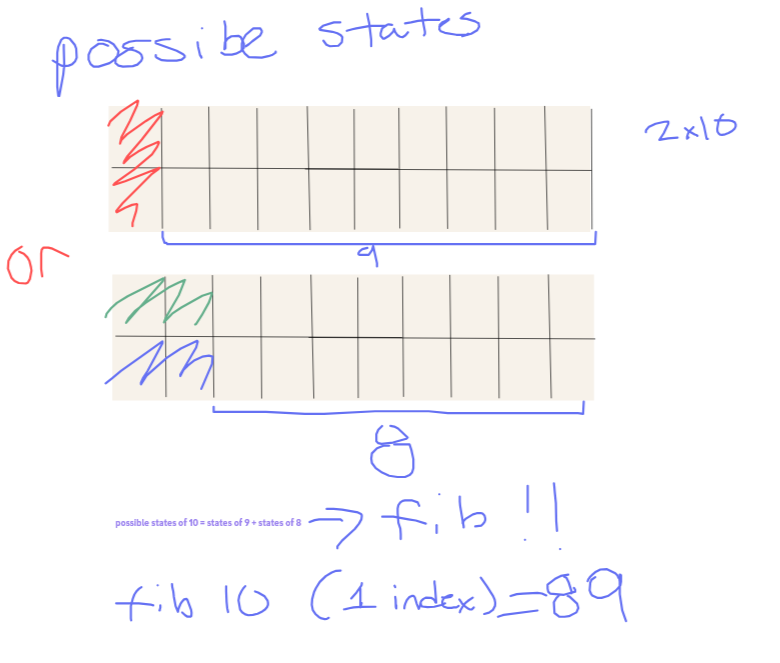 possibe states
2x10
9
or
8
possible states of 10 = states of 9 + states of 8 → fib !!
fib 10 (1 index) = 89